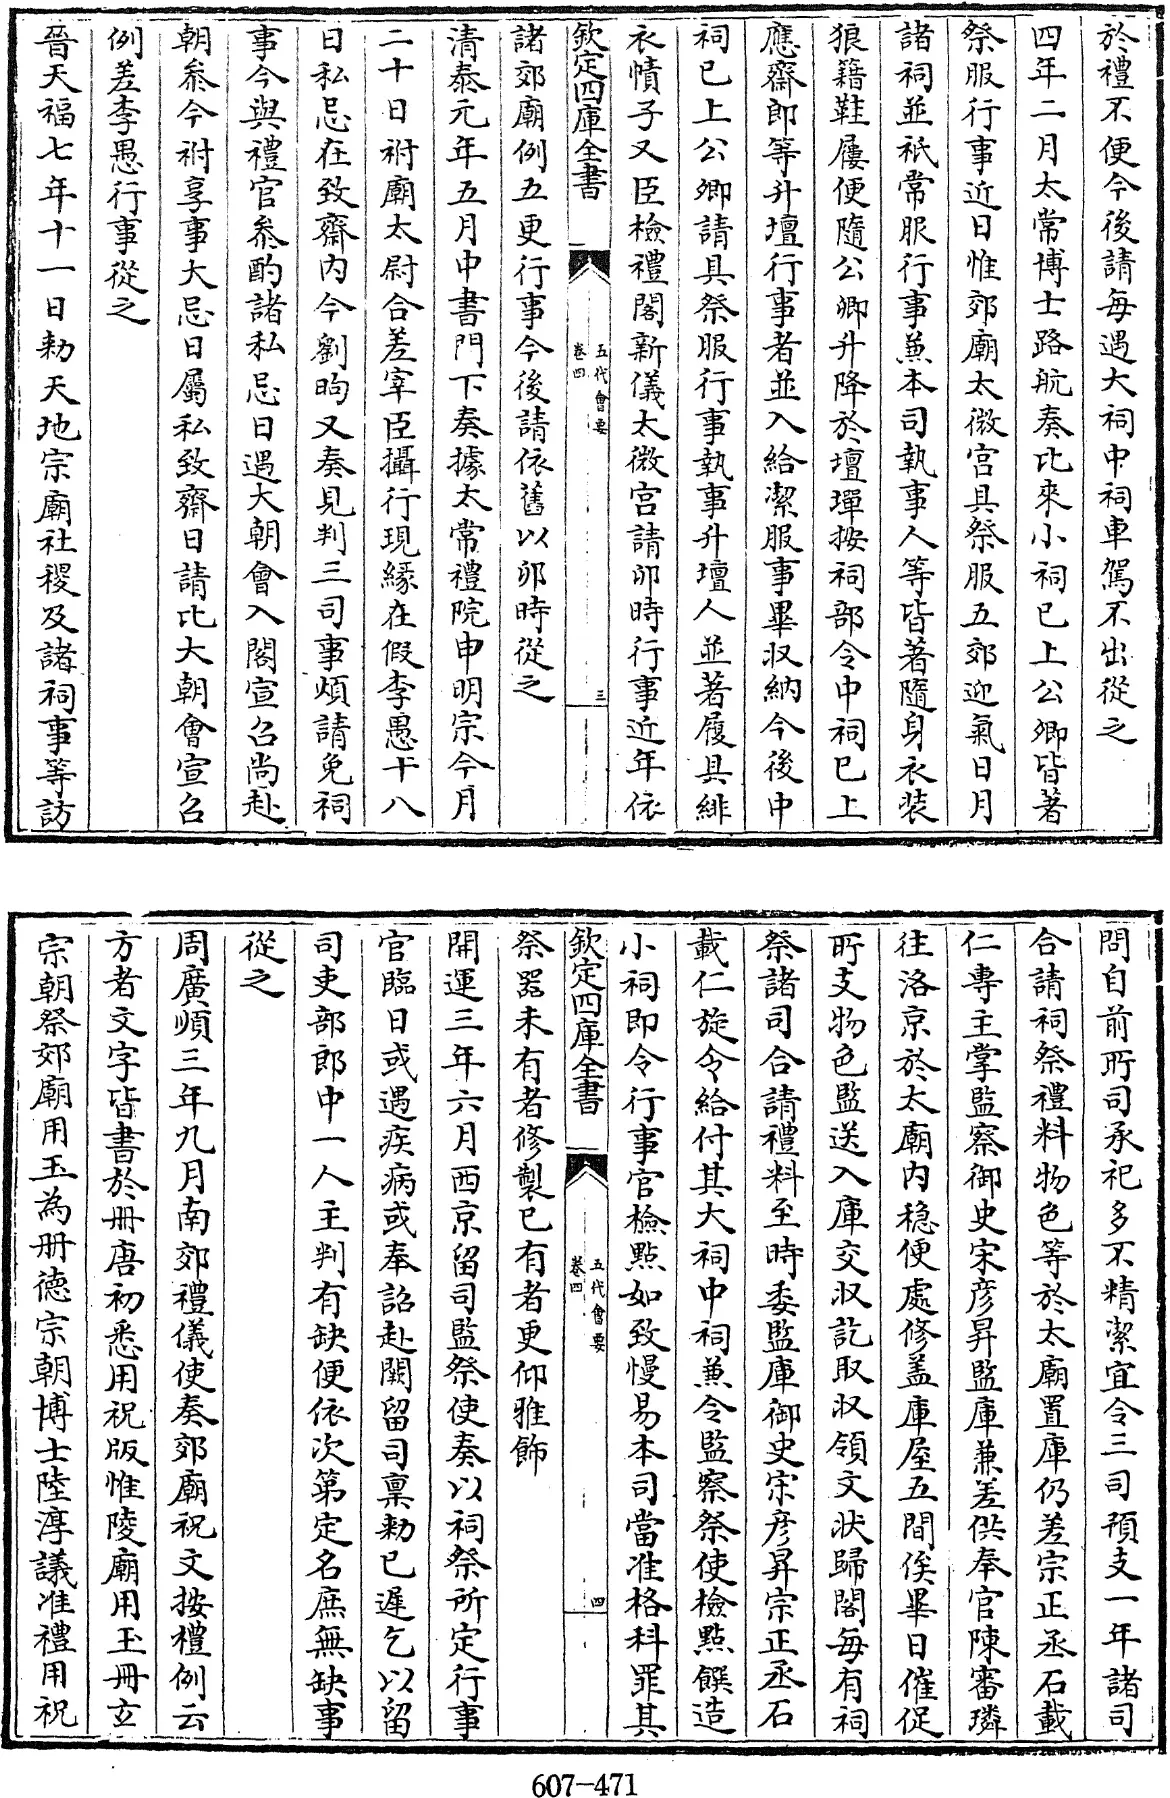 於禮不便今後請每遇大祠中祠車駕不出從之
四年二月太常博士路航奏比來小祠已上公卿皆著
祭服行事近日惟郊廟太微宮具祭服五郊迎氣日月
諸祠並祇常服行事兼本司執事人等皆著隨身衣裝
狼籍鞋屨便隨公卿升降於壇墠按祠部令中祠已上
應齋郎等升壇行事者並入給潔服事畢収納今後中
祠已上公卿請具祭服行事執事升壇人並著履具緋
衣幘子又臣檢禮閣新儀太微宮請卯時行事近年依
欽定四庫全書
五代會要
卷四
三
諸郊廟例五更行事今後請依舊以卯時從之
清泰元年五月中書門下奏據太常禮院申明宗今月
二十日祔廟太尉合差宰臣攝行現緣在假李愚十八
日私忌在致齋内今劉昫又奏見判三司事煩請免祠
事今與禮官叅酌諸私忌日遇大朝會入閣宣召尚赴
朝叅今祔享事大忌日屬私致齋日請比大朝會宣召
例差李愚行事從之
晉天福七年十一日勅天地宗廟社稷及諸祠事等訪
問自前所司承祀多不精潔宜令三司預支一年諸司
合請祠祭禮料物色等於太廟置庫仍差宗正丞石載
仁專主掌監察御史宋彦昇監庫兼差供奉官陳審璘
往洛京於太廟内稳便處修蓋庫屋五間俟畢日催促
所支物色監送入庫交収訖取収領文狀歸閣每有祠
祭諸司合請禮料至時委監庫御史宋彦昇宗正丞石
載仁旋令給付其大祠中祠兼令監察祭使檢點饌造
小祠即令行事官檢點如致慢易本司當准格科罪其
欽定四庫全書
五代會要
卷四
四
祭器未有者修製已有者更仰雅飾
開運三年六月西京留司監祭使奏以祠祭所定行事
官臨日或遇疾病或奉詔赴闕留司稟勅已遲乞以留
司吏部郎中一人主判有缺便依次第定名庶無缺事
從之
周廣順三年九月南郊禮儀使奏郊廟祝文按禮例云
方者文字皆書於册唐初悉用祝版惟陵廟用玉册玄
宗朝祭郊廟用玉為册德宗朝博士陸淳議准禮用祝
607-471